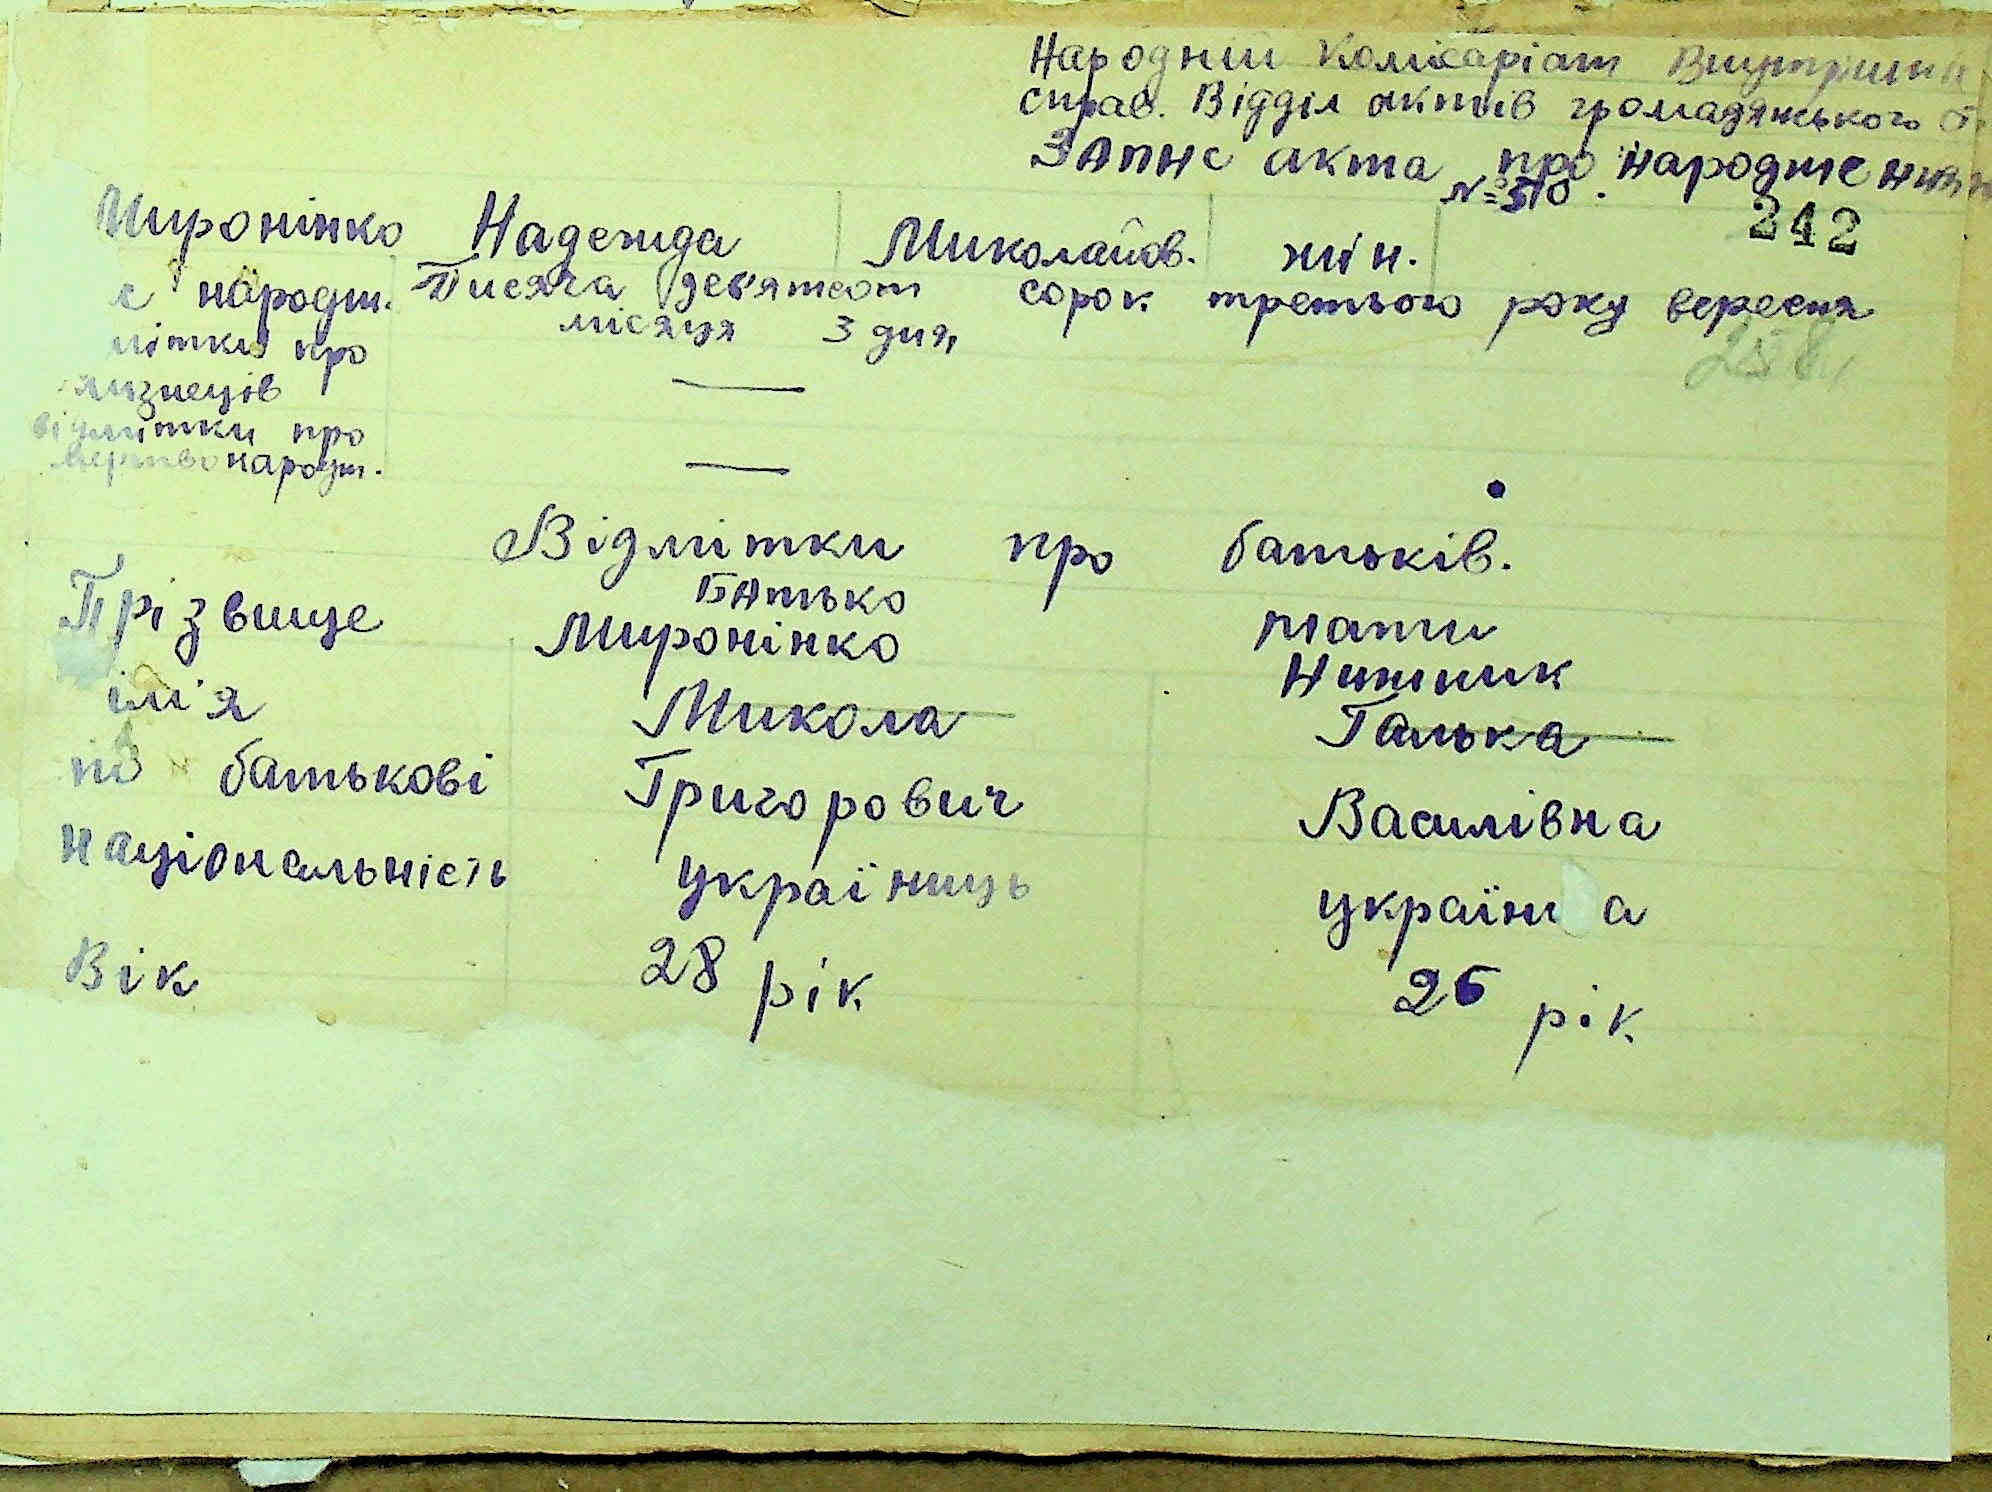 Народній Комісаріат Внутрішн
справ. Відділ актів громадянського
Запис акта про народження
№ 510. 242
Миронінко Надежда Миколайов. жін.
с народж. Тисяча девятсот сорок третього року вересня
місяця 3 дня,
мітки про
лизнеців —
відмітки про
мертвонародж. —
Відмітки про батьків.
Батько мати
Прізвище Миронінко Нижник
ім'я Микола Галька
по батькові Григорович Василівна
Національність українець україн а
Вік 28 рік 26 рік